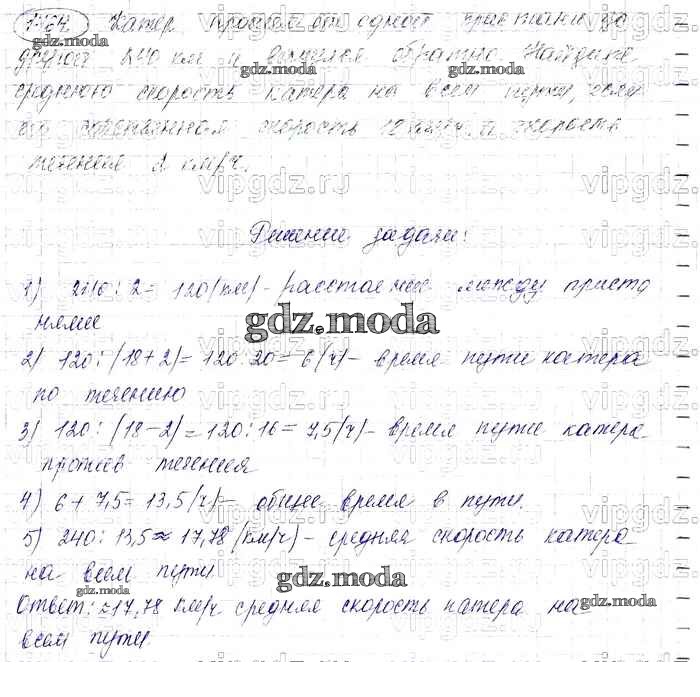 Катер прошел от одной пристани до
другой 240 км и вернулся обратно. Найдите
среднюю скорость катера на всем пути, если
его собственная скорость 18 км/ч, а скорость
течения 2 км/ч.
Решение задачи:
1) 240 : 2 = 120 (км) - расстояние между приста
нями
2) 120 : (18 + 2) = 120 : 20 = 6 (ч) - время пути катера
по течению
3) 120 : (18 - 2) = 120 : 16 = 7,5 (ч) - время пути катера
против течения
4) 6 + 7,5 = 13,5 (ч) - общее время в пути.
5) 240 : 13,5 ≈ 17,78 (км/ч) - средняя скорость катера
на всем пути.
Ответ: ≈ 17,78 км/ч средняя скорость катера на
всем пути.
gdz.moda
vipgdz.ru